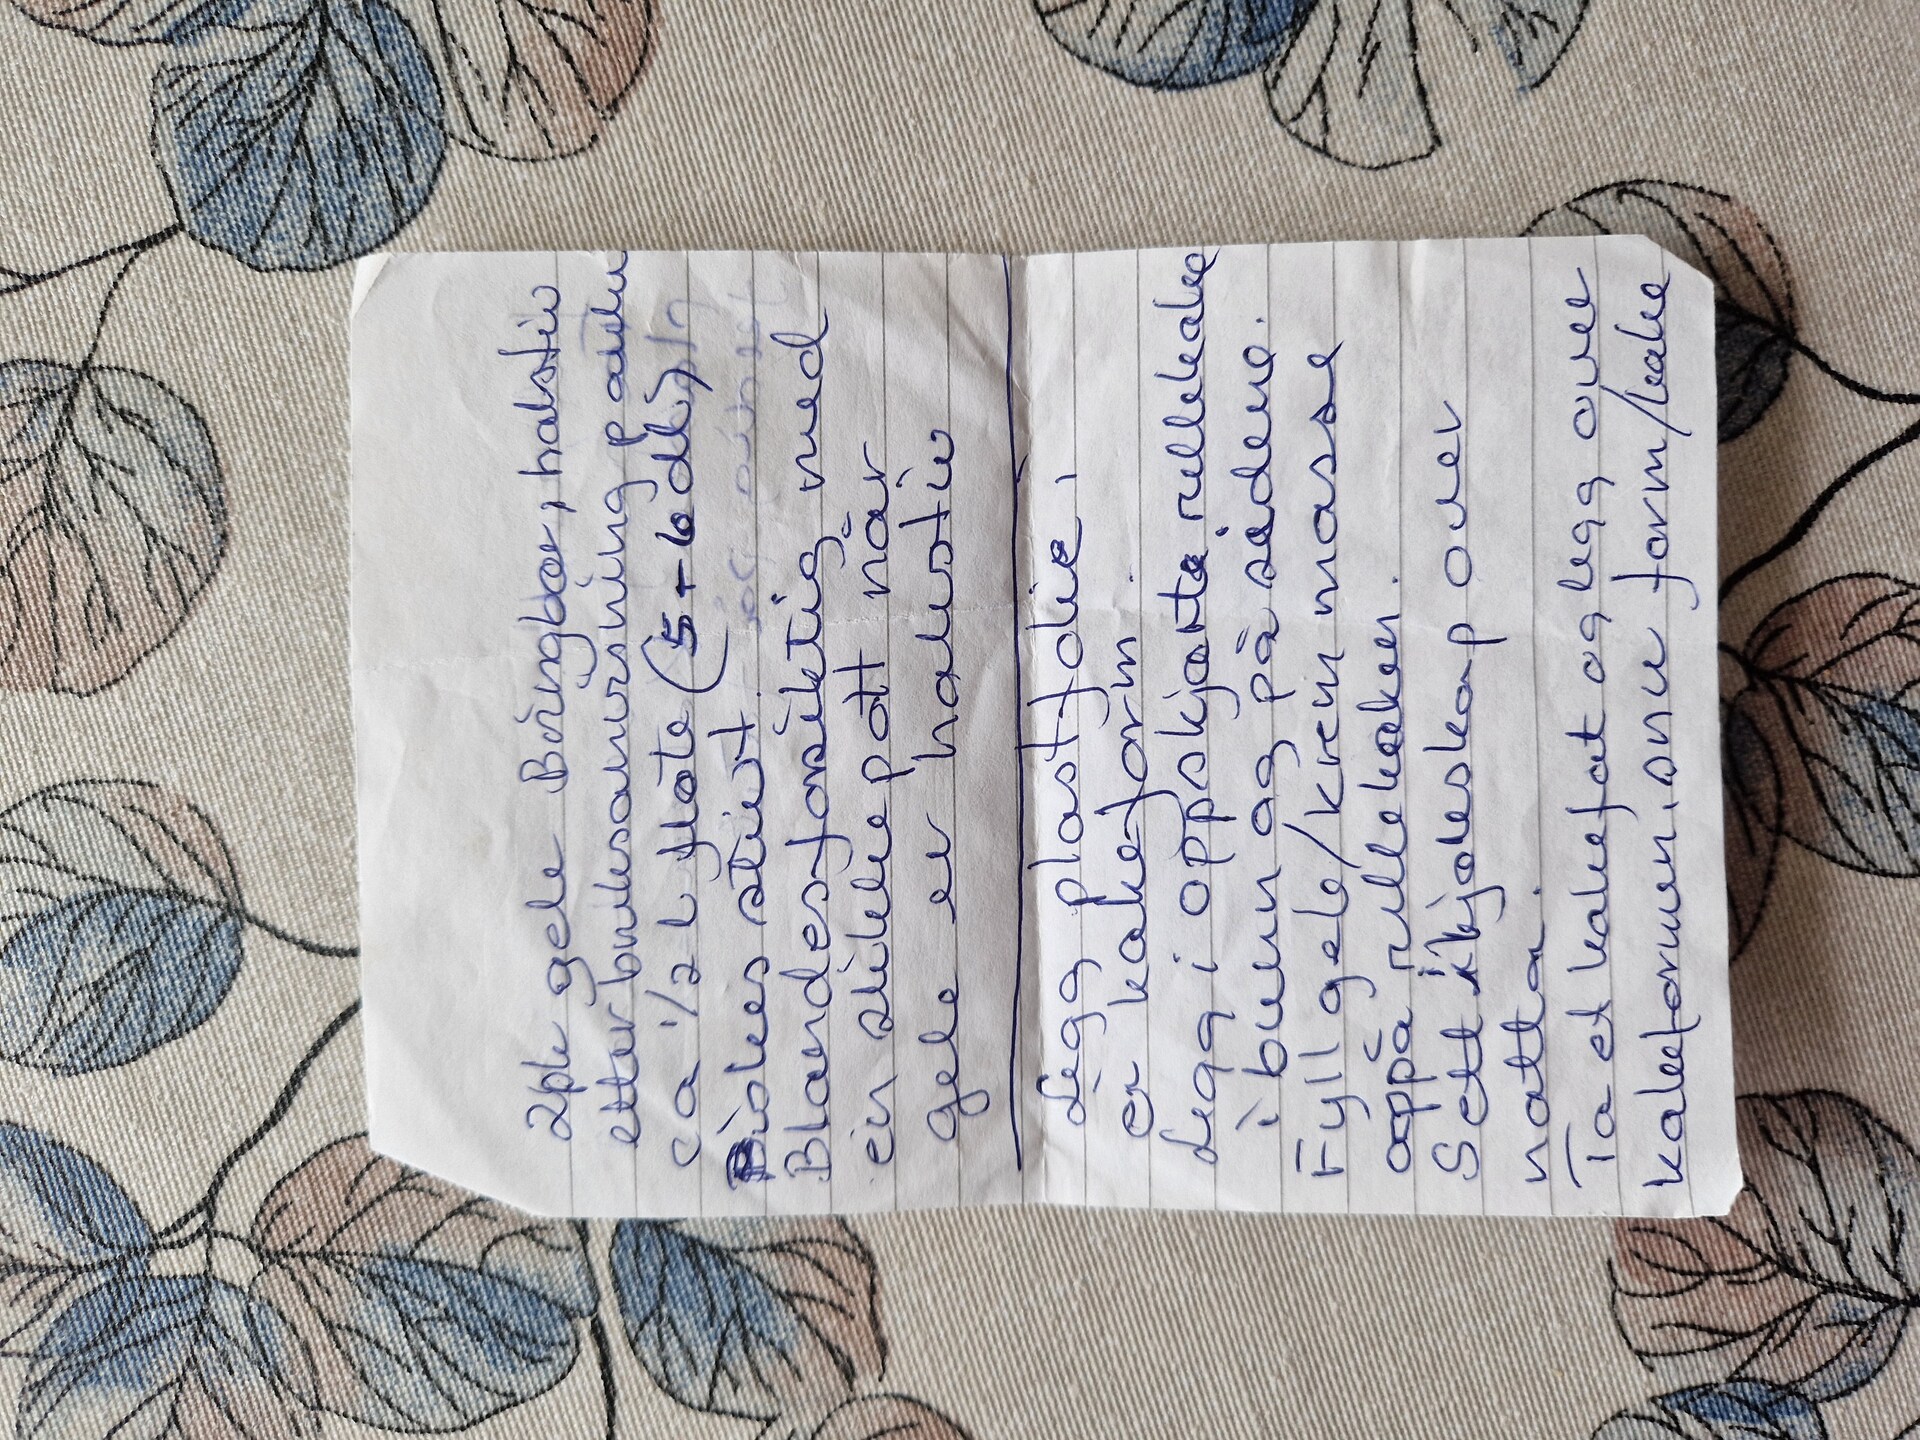 2pk gele Bringbær, halvstiv
etter bruksanvisning på
ca 1/2 l fløte (5-6 dl)
Piskes stivt.
Blandes forsiktig med
ein slikkepott når
gele er halvstiv
Legg plastfolie i
ei kakeform.
Legg i oppskjærte rullekake
i bunn og på sidene.
Fyll gele/krem masse
oppå rullekaken.
Sett i kjøleskap over
natta.
Ta et kakefat og legg over
kakeformen, snu form/kake